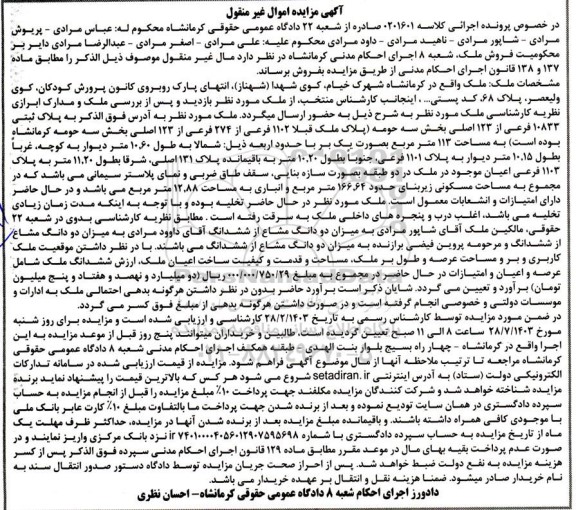 آگهی مزایده اموال غیر منقول
در خصوص پرونده اجرائی کلاسه ۰۲۰۱۶۰۱ صادره از شعبه ۲۲ دادگاه عمومی حقوقی کرمانشاه محکوم له: عباس مرادی - پریوش
مرادی - شاپور مرادی - ناهید مرادی - داود مرادی محکوم علیه: علی مرادی - اصغر مرادی - عبدالرضا مرادی دایر بر
محکومیت فروش ملک، شعبه ۸ اجرای احکام مدنی کرمانشاه در نظر دارد مال غیر منقول موصوف ذیل الذکر را مطابق ماده
۱۳۷ و ۱۳۸ قانون اجرای احکام مدنی از طریق مزایده بفروش برساند.
مشخصات ملک: ملک واقع در کرمانشاه شهرک خیام، کوی شهدا (شهناز)، انتهای پارک روبروی کانون پرورش کودکان، کوی
ولیعصر، پلاک ۶۸، کد پستی... ، اینجانب کارشناس منتخب، از ملک مورد نظر بازدید و پس از بررسی ملک و مدارک ابرازی
نظریه کارشناسی ملک مورد نظر به شرح ذیل به حضور ارسال میگردد. ملک مورد نظر به آدرس فوق الذکر به پلاک ثبتی
۱۰۸۳۳ فرعی از ۱۲۳ اصلی بخش سه حومه (پلاک ملک قبلا ۱۱۰۲ فرعی از ۲۷۴ فرعی از ۱۲۳ اصلی بخش سه حومه کرمانشاه
بوده است) به مساحت ۱۱۳ متر مربع بصورت یک بر با حدود اربعه ذیل: شمالا به طول ۱۰.۶۰ متر دیوار به کوچه، غرباً
بطول ۱۰.۱۵ متر دیوار به پلاک ۱۱۰۱ فرعی، جنوبا بطول ۱۰.۲۰ متر به باقیمانده پلاک ۱۳۱ اصلی، شرقا بطول ۱۱.۲۰ متر به پلاک
۱۱۰۳ فرعی اعیان موجود در ملک در دو طبقه بصورت سازه بنایی، سقف طاق ضربی و نمای پلاستر سیمانی می باشد که در
مجموع به مساحت مسکونی زیربنای حدود ۱۶۶.۶۴ متر مربع و انباری به مساحت ۱۲.۸۸ متر مربع می باشد و در حال حاضر
دارای امتیازات و انشعابات معمول است. ملک مورد نظر در حال حاضر تخلیه بوده و با توجه به اینکه مدت زمان زیادی
تخلیه می باشد، اغلب درب و پنجره های داخلی ملک به سرقت رفته است . مطابق نظریه کارشناسی بدوی در شعبه ۲۲
حقوقی، مالکین ملک آقای شاپور مرادی به میزان دو دانگ مشاع از ششدانگ آقای داوود مرادی به میزان دو دانگ مشاع
از ششدانگ و مرحومه پروین فیضی برازنده به میزان دو دانگ مشاع از ششدانگ می باشند. با در نظر داشتن موقعیت ملک
کاربری و بر و مساحت عرصه و طول بر ملک، مساحت و قدمت و کیفیت ساخت اعیان ملک، ارزش ششدانگ ملک شامل
عرصه و اعیان و امتیازات در حال حاضر در مجموع به مبلغ ۲۹/۷۵۰/۰۰۰/۰۰۰ ریال (دو میلیارد و نهصد و هفتاد و پنج میلیون
تومان) برآورد و تعیین می گردد. شایان ذکر است برآورد حاضر بدون در نظر داشتن هرگونه بدهی احتمالی ملک به ادارات و
موسسات دولتی و خصوصی انجام گرفته است و در صورت داشتن هرگونه بدهی از مبلغ فوق کسر می گردد.
در ضمن مورد مزایده توسط کارشناس رسمی به تاریخ ۲۸/۲/۱۴۰۳ کارشناسی و ارزیابی شده است و مزایده برای روز شنبه
مورخ ۲۸/۷/۱۴۰۳ ساعت ۸ الی ۱۱ صبح تعیین گردیده است. طالبین و خریداران میتوانند پنج روز قبل از موعد مزایده به این
اجرا واقع در کرمانشاه - چهار راه بسیج بلوار بنت الهدی - طبقه همکف اجرای احکام مدنی شعبه ۸ دادگاه عمومی حقوقی
کرمانشاه مراجعه تا ترتیب ملاحظه آنها از مال موضوع آگهی فراهم شود. مزایده از قیمت ارزیابی شده در سامانه تدارکات
الکترونیکی دولت (ستاد) به آدرس اینترنتی setadiran.ir شروع می شود هر کس که بالاترین قیمت را پیشنهاد نماید برنده
مزایده شناخته خواهد شد و شرکت کنندگان مزایده مکلفند جهت پرداخت ۱۰٪ مبلغ مزایده را قبل از انجام مزایده به حساب
سپرده دادگستری در همان سایت تودیع نموده و بعد از برنده شدن جهت پرداخت ما بالتفاوت مبلغ ۱۰٪ کارت عابر بانک ملی
با موجودی کافی همراه داشته باشند. و باقیمانده مبلغ مزایده بعد از برنده شدن آنها در مزایده، حداکثر ظرف مهلت یک
ماه از تاریخ مزایده به حساب سپرده دادگستری با شماره ir ۷۴۰۱۰۰۰۰۴۰۵۶۰۱۲۹۰۷۵۹۵۶۹۸ نزد بانک مرکزی واریز نمایند و در
صورت عدم پرداخت بقیه بهای مال در موعد مقرر مطابق ماده ۱۲۹ قانون اجرای احکام مدنی سپرده فوق الذکر پس از کسر
هزینه مزایده به نفع دولت ضبط خواهد شد. پس از احراز صحت جریان مزایده توسط دادگاه دستور صدور انتقال سند به
نام خریدار صادر میشود. ضمنا هزینه نقل و انتقال بر عهده خریدار می باشد.
دادورز اجرای احکام شعبه ۸ دادگاه عمومی حقوقی کرمانشاه- احسان نظری